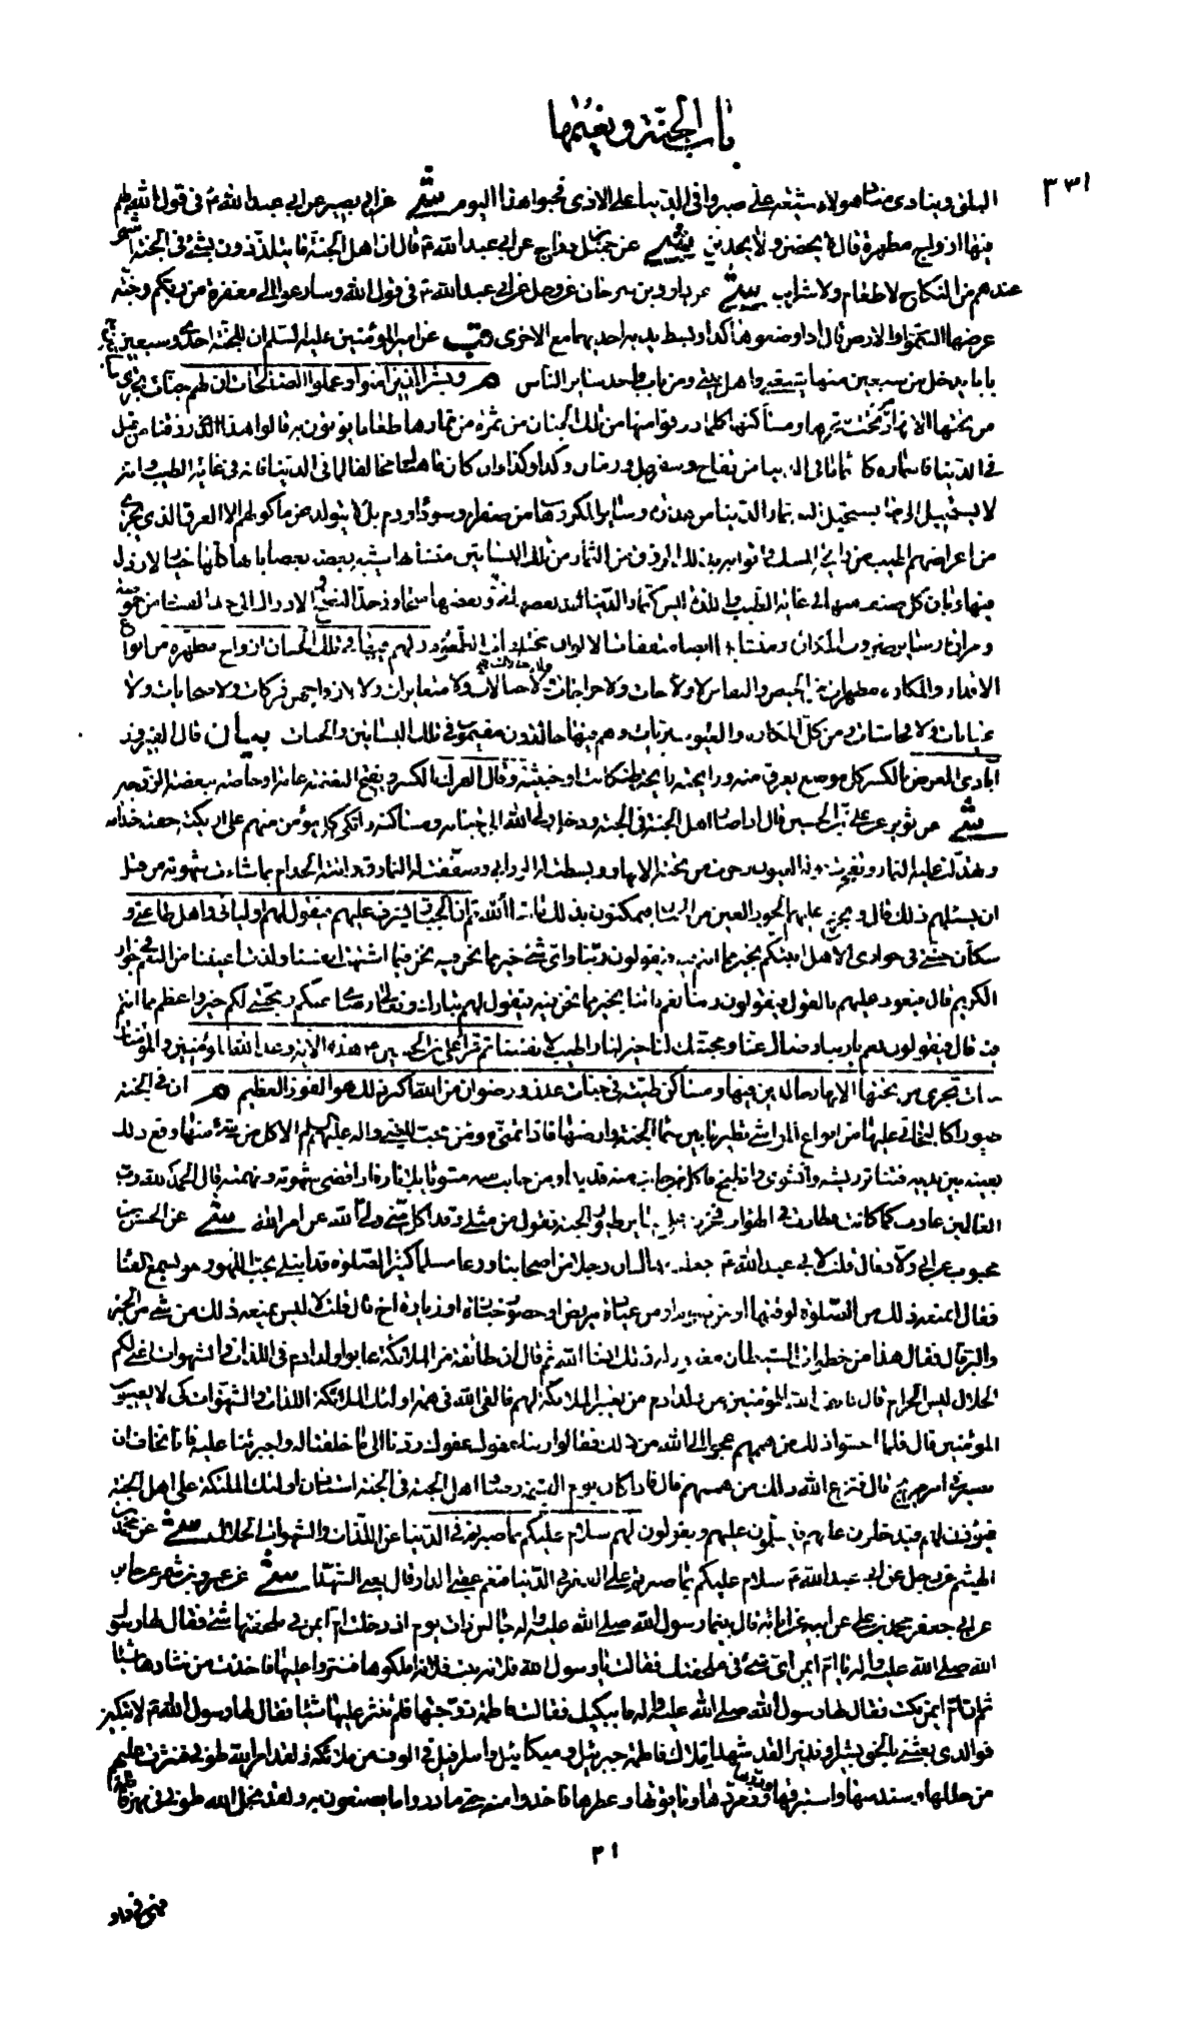 باب الجنة و نعيمها
٣٣١
وينادى مناد هؤلاء شيعة على صبروا فى الدنيا على الاذى فحبوا هذا اليوم شى عن ابى بصير عن ابى عبد الله ع فى قول الله لهم
فيها ازواج مطهرة قال لا يحضن ولا يحدثن شى عن جميل بن دراج عن ابى عبد الله ع قال ان اهل الجنة ما يتلذذون بشئ فى الجنة اشهى
عندهم من النكاح لا طعام ولا شراب شى عن داود بن سرحان عن رجل عن ابى عبد الله ع فى قول الله وسارعوا الى مغفرة من ربكم وجنة
عرضها السموات والارض قال اذا وضعوها كذا وبسط يديه احديهما مع الاخرى قب عن امير المؤمنين عليه السلم ان للجنة احدى وسبعين
بابا يدخل من سبعين منها شيعتى واهل بيتى ومن باب واحد سائر الناس م وبشر الذين امنوا وعملوا الصالحات ان لهم جنات تجرى
من تحتها الانهار من تحت شجرها ومساكنها كلما رزقوا منها من تلك الجنان من ثمرة من ثمارها طعاما يؤتون به قالوا هذا الذى رزقنا من قبل
فى الدنيا فاسماؤه كاسماء ما فى الدنيا من تفاح وسفرجل ورمان وكذا وكذا وان كان ما هناك مخالفا لما فى الدنيا فانه فى غاية الطيب وانه
لا يستحيل الى ما يستحيل اليه ثمار الدنيا من عذرة وسائر المكروهات من صفراء وسوداء ودم بل لا يتولد عن ماكولهم الا العرق الذى يجرى
من اعراضهم اطيب من رائحة المسك واتوا به بذلك الرزق من الثمار من تلك البساتين متشابها يشبه بعضه بعضا بانها كلها خيار لا رذل
فيها وبان كل صنف منها فى غاية الطيب واللذة ليس كثمار الدنيا التى بعضها
الاقذار والمكاره مطهرات من الحيض والنفاس لا ولاجات ولا خراجات ولا
ولا متغايرات ولا لازواجهن فركات ولا صخابات ولا
عيابات ولا فحاشات ومن كل المكاره والعيوب بريات وهم فيها خالدون مقيمون فى تلك البساتين والجنات بيان قال الفيروز
ابادى العرض بالكسر كل موضع يعرق منه ورايحته رايحة طيبة كانت او خبيثة وقال الفرك بالكسر ويفتح البغضة عامة او خاصة ببغضة الزوجين
شى عن ثوير عن على بن الحسين قال اذا صار اهل الجنة فى الجنة ودخل ولى الله الى جنانه ومساكنه واتكى كل مؤمن منهم على اريكته حفته خدامه
وتهدلت عليه الثمار وتفجرت حوله العيون وجرت من تحته الانهار وبسطت له الزرابى وصففت له النمارق واتته الخدام بما شاءت شهوته من قبل
ان يسئلهم ذلك قال ويخرج عليهم الحور العين من الجنان فيمكثون بذلك ما شاء الله ثم ان الجبار يشرف عليهم فيقول لهم اوليائى واهل طاعتى و
سكان جنتى فى جوارى الا هل انبئكم بخير مما انتم فيه فيقولون ربنا واى شئ خير مما نحن فيه نحن فيما اشتهت انفسنا ولذت اعيننا من النعم فى جوار
الكريم قال فيعود عليهم بالقول فيقولون ربنا نعم فاتنا بخير مما نحن فيه فيقول لهم تبارك وتعالى رضاى عنكم ومحبتى لكم خير واعظم مما انتم
فيه قال فيقولون نعم يا ربنا رضاك عنا ومحبتك لنا خير لنا واطيب لانفسنا ثم قرأ على بن الحسين ع هذه الاية وعد الله المؤمنين والمؤمنات
جنات تجرى من تحتها الانهار خالدين فيها ومساكن طيبة فى جنات عدن ورضوان من الله اكبر ذلك هو الفوز العظيم م ان فى الجنة
طيورا كالبخاتى عليها من انواع المواشى تطير ما بين سماء الجنة وارضها فاذا تمنى مؤمن محب للنبى واله عليهم السلم الاكل من شئ منها وقع ذلك
بعينه بين يديه فتناثر ريشه وانشوى وانطبخ فاكل من جانب منه قديدا ومن جانب منه مشويا بلا نار فاذا قضى شهوته ونهمته قال الحمد لله رب
العالمين عادت كما كانت فطارت فى الهواء وفخرت على سائر طيور الجنة تقول من مثلى وقد اكل منى ولى الله عن امر الله شى عن الحسن بن
محبوب عن ابى ولاد قال قلت لابى عبد الله ع جعلت فداك ان رجلا من اصحابنا ورعا مسلما كثير الصلوة قد ابتلى بحب اللهو وهو يسمع الغنا
فقال ايمنعه ذلك من الصلوة لوقتها او من صوم او من عيادة مريض او حضور جنازة او زيارة اخ قال قلت لا ليس يمنعه ذلك من شئ من الخير
والبر قال فقال هذا من خطوات الشيطان مغفور له ذلك انشاء الله ثم قال ان طائفة من الملائكة عابوا ولد ادم فى اللذات والشهوات اعنى لكم
الحلال ليس الحرام قال فانف الله للمؤمنين من ولد ادم من تعيير الملائكة لهم قال فالقى الله فى همة اولئك الملائكة اللذات والشهوات كى لا يعيبون
المؤمنين قال فلما احسوا ذلك من هممهم عجوا الى الله من ذلك فقالوا ربنا عفوك عفوك ردنا الى ما خلقتنا له واجبرتنا عليه فانا نخاف ان
نصير فى امر مريج قال فنزع الله ذلك من هممهم قال فاذا كان يوم القيمة وصار اهل الجنة فى الجنة استاذن اولئك الملئكة على اهل الجنة
فيؤذن لهم فيدخلون عليهم فيسلمون عليهم ويقولون لهم سلام عليكم بما صبرتم فى الدنيا عن اللذات والشهوات الحلال شى عن محمد بن
الهيثم عن رجل عن ابى عبد الله ع سلام عليكم بما صبرتم على الفقر فى الدنيا فنعم عقبى الدار قال يعنى الشهداء شى عن عمرو بن شمر عن جابر
عن ابى جعفر محمد بن على عن ابيه عن ابائه قال بينما رسول الله صلى الله عليه واله جالس ذات يوم اذ دخلت ام ايمن فى ملحفتها شئ فقال لها رسول
الله صلى الله عليه واله يا ام ايمن اى شئ فى ملحفتك فقالت يا رسول الله فلانة بنت فلانة املكوها فنثروا عليها فاخذت من نثارها شيئا
ثم ان ام ايمن بكت فقال لها رسول الله صلى الله عليه واله ما يبكيك فقالت فاطمة زوجتها فلم تنثر عليها شيئا فقال لها رسول الله ص لا تبكين
فو الذى بعثنى بالحق بشيرا ونذيرا لقد شهد املاك فاطمة جبرئيل وميكائيل واسرافيل فى الوف من ملائكة ولقد امر الله طوبى فنثرت عليهم
من حللها وسندسها واستبرقها ودرها وزمردها وياقوتها وعطرها فاخذوا منه حتى ما دروا ما يصنعون به ولقد نحل الله طوبى فى مهر فاطمة
٢١